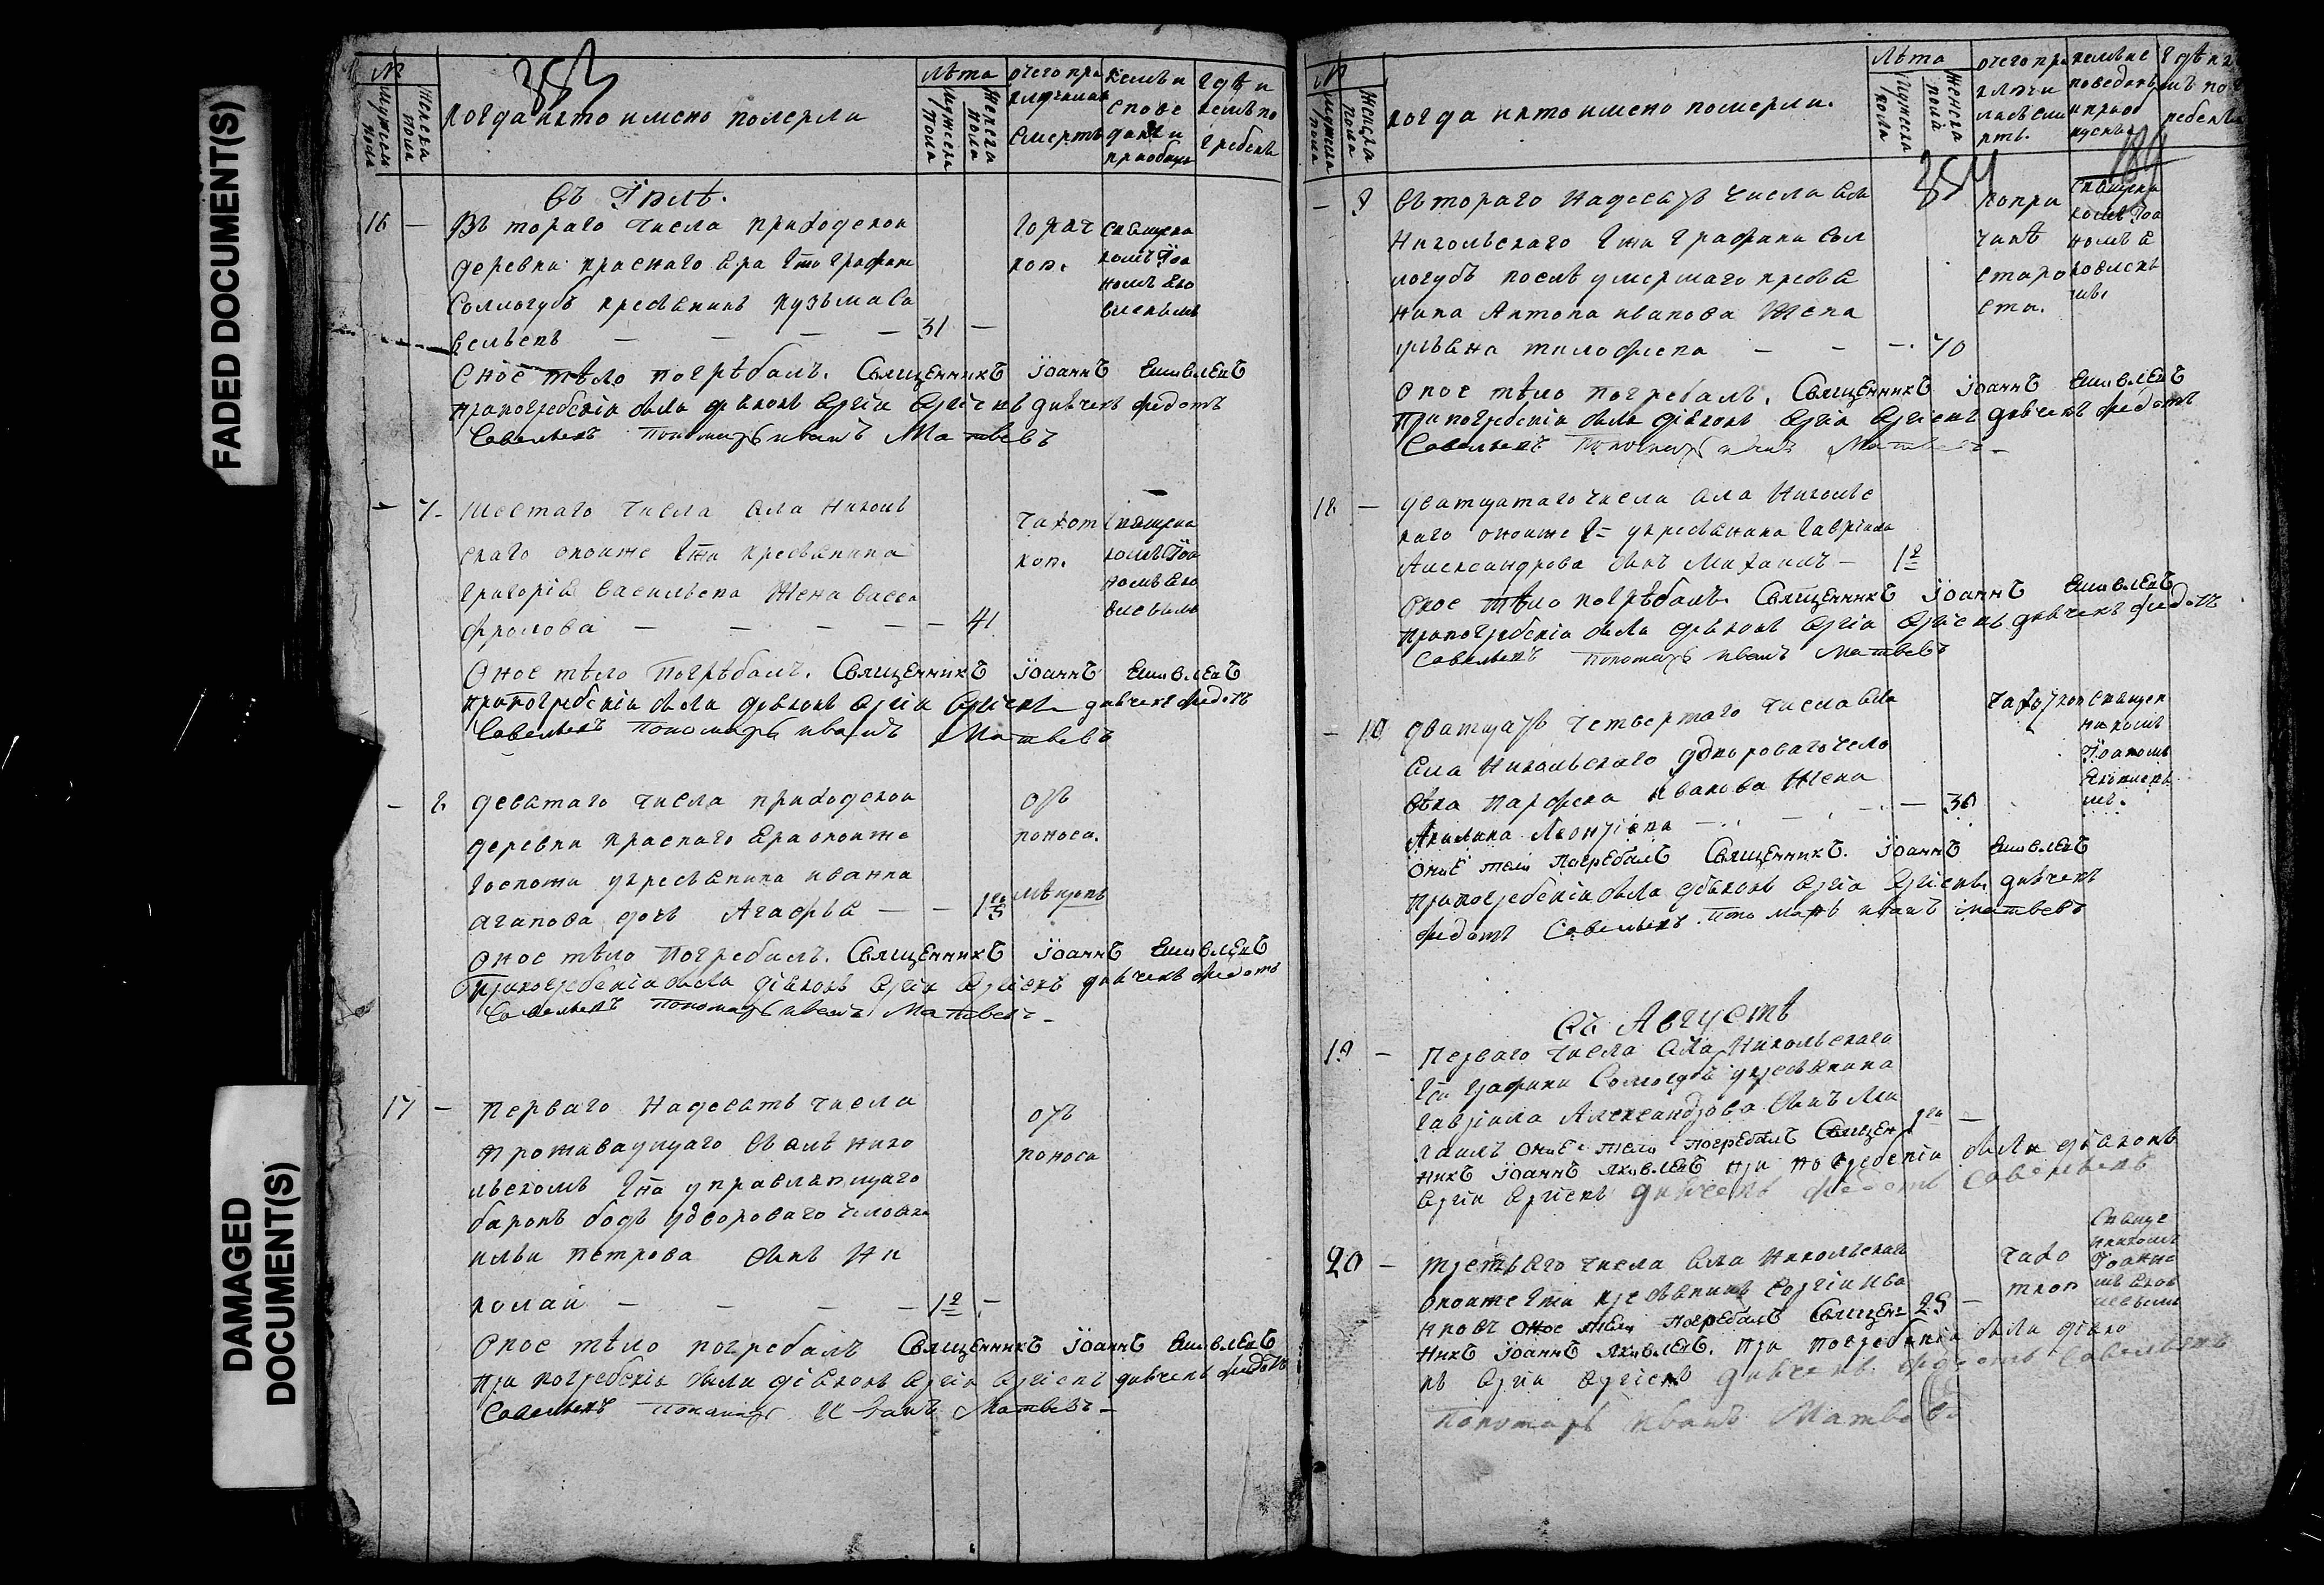 FADED DOCUMENT(S)
DAMAGED
DOCUMENT(S)
353
№
Мужеска пола
Женска пола
когда икто имено померли
Лѣта
Мужеска пола
Женска пола
отчего приключилась смерть
кемъ и
спове
данъ и
приобщ
гдѣ и
кемъ по
гребенъ
въ Іюлѣ.
16 — Въ тораго числа приходской
деревни краснаго Яра Гжи Графини
Соллогубъ крестьянинъ Кузьма Са
вельевъ — — — — 31 —
горяч
кою.
священ
комъ Іоа
номъ Яко
влевымъ
Оное тѣло погрѣбалъ. Священникъ Іоаннъ Яковлевъ
припогребеніи были дьяконъ дьячекъ Федотъ
Савельевъ Пономарь иванъ Матвевъ
— 7 — шестаго числа села Николь
скаго оноиже Гжи крестьянина
григорія васильева Жена васса
фролова — — — — 41
чахот
кою.
священ
комъ Іоа
номъ Яко
влевымъ
Оное тѣло Погрѣбалъ. Священникъ Іоаннъ Яковлевъ
припогребеніи были дьяконъ дьячекъ Федотъ
Савельевъ Пономарь иванъ Матвевъ
— 8 девятаго числа приходской
деревни краснаго Яра оноиже
госпожи укрестьянина ивана
агапова дочь Агафья — —
отъ
поноса.
Оное тѣло Погребалъ. Священникъ Іоаннъ Яковлевъ
припогребеніи были діаконъ дьячекъ Федотъ
Савельевъ Пономарь иванъ Матвевъ
17 — Перваго Надесять числа
проживающаго въ селѣ Нико
льскомъ Гна управляющаго
баронъ боде удвороваго человека
ильи петрова сынъ Ни
колай — — — — 1 —
отъ
поноса
Оное тѣло погребалъ Священникъ Іоаннъ Яковлевъ
При погребеніи были діаконъ дьячекъ Федотъ
Савельевъ Пономарь Иванъ Матвевъ
№
Мужеска пола
Женска пола
когда икто имено померли.
Лѣта
Мужеска пола
Женска пола
отчего при
ключи
лась сме
рть.
354
— 9 Втораго Надесять числа села
Никольскаго Гжи Графини Сол
логубъ послѣ умершаго крестья
нина Антона иванова Жена
ульяна тимофеева — — — 70
попри
чинѣ
старо
сти.
священ
комъ Іоа
номъ Я
ковлевы
мъ.
Оное тѣло погребалъ. Священникъ Іоаннъ Яковлевъ
Припогребеніи были діаконъ дьячекъ Федотъ
Савельевъ Пономарь иванъ Матвевъ
18 — дватцатаго числа села Никольс
каго оноиже Гжи укрестьянина Гавріила
Александрова сынъ Михаилъ — 1
Оное тѣло погрѣбалъ. Священникъ Іоаннъ Яковлевъ
припогребеніи были дьяконъ дьячекъ Федотъ
Савельевъ Пономарь иванъ Матвевъ
— 10 дватцать четвертаго числа села
Села Никольскаго удвороваго чело
века Парфена иванова Жена
Акилина Леонтіева — — — 30
чахоткою
священ
никомъ
Іоаномъ
Яковлевы
мъ.
Оное тело погребалъ Священникъ. Іоаннъ Яковлевъ
припогребеніи были дьяконъ дьячекъ
Федотъ Савельевъ Пономарь иванъ Матвевъ
Въ Августѣ
19 — Перваго числа села Никольскаго
Гжи Графини Соллогубъ укрестьянина
Гавріила Александрова сынъ Ми
хаилъ оное тело погребалъ Священ
никъ Іоаннъ Яковлевъ при погребеніи были дьяконъ
дьячекъ Федотъ Савельевъ
20 — третьяго числа села Никольскаго
оноиже Гжи крестьянинъ Сергіи Ива
новъ оное тело погребалъ Священ 25 —
чахо
ткою
Свяще
никомъ
Іоанно
мъ Яков
левымъ
никъ Іоаннъ Яковлевъ. При погребеніи были діако
нъ дьячекъ Федотъ Савельевъ
Пономарь иванъ Матвевъ